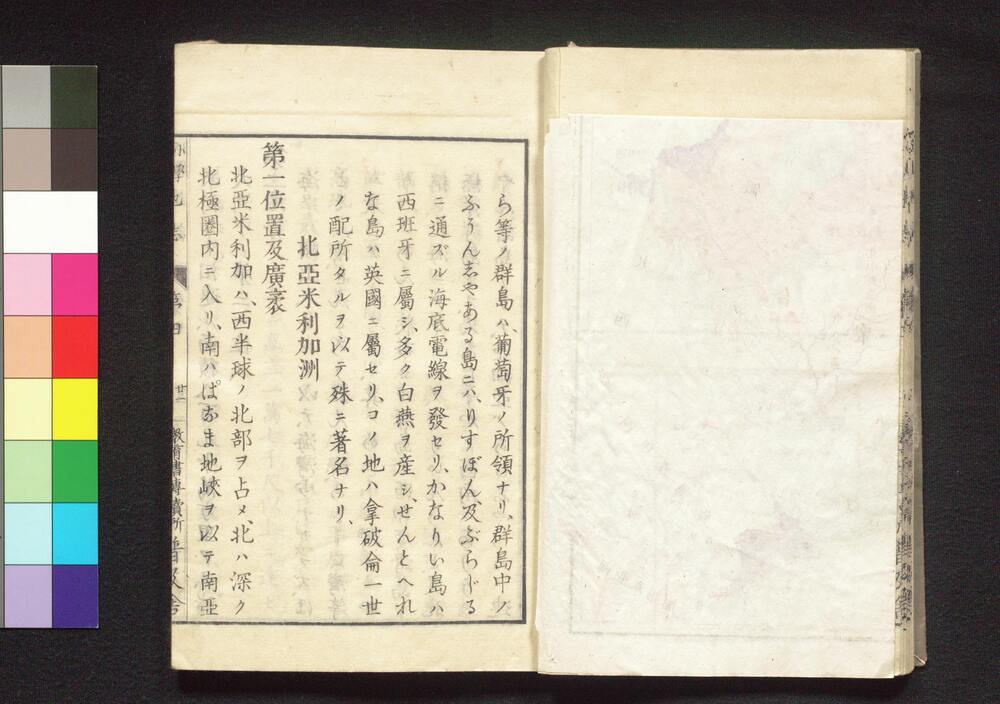 やら等ノ群島ハ、葡萄牙ノ所領ナリ、群島中ノ
ふうんしやある島ニハ、りすぼん、及ぶらじる
ニ通ズル海底電線ヲ發セリ、かなりい島ハ
西班牙ニ屬シ、多ク白燕ヲ産シ、せんとへれ
な島ハ英國ニ屬セリ、コノ地ハ拿破侖一世
ノ配所タルヲ以テ殊ニ著名ナリ、
北亞米利加洲
第一位置及廣袤
北亞米利加ハ、西半球ノ北部ヲ占メ、北ハ深ク
北極圈內ニ入リ、南ハぱなま地峽ヲ以テ南亞
卷四
廿一
教育書專賣所普及舍